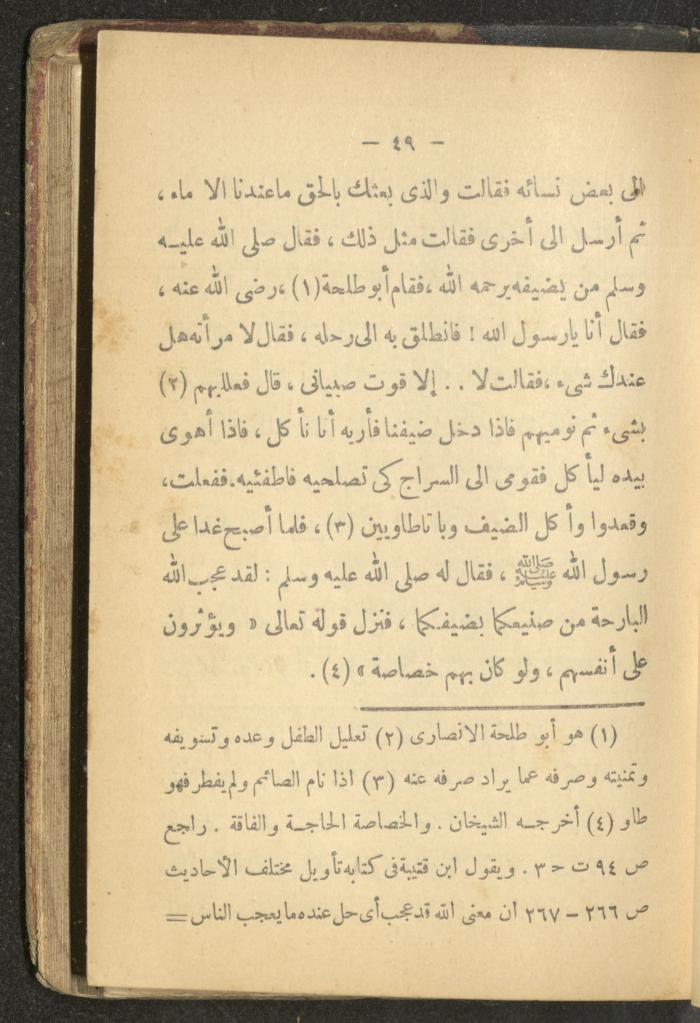 — ٤٩ —
الى بعض نسائه فقالت والذى بعثك بالحق ماعندنا الا ماء ،
ثم أرسل الى أخرى فقالت مثل ذلك ، فقال صلى الله عليه
وسلم من يضيفه يرحمه الله ،فقام أبو طلحة(١) ،رضى الله عنه ،
فقال أنا يارسول الله ! فانطلق به الى رحله ، فقال لا مرأته هل
عندك شىء ،فقالت لا . . إلا قوت صبيانى ، قال فعلليهم (٢)
بشىء ثم نوميهم فاذا دخل ضيفنا فأريه أنا نأكل ، فاذا أهوى
بيده ليأكل فقومى الى السراج كى تصلحيه فاطفئيه.ففعلت،
وقعدوا وأكل الضيف وباتا طاويين (٣) ، فلما أصبح غدا على
رسول الله ﷺ ، فقال له صلى الله عليه وسلم : لقد عجب الله
البارحة من صنيعكما بضيفكما ، فنزل قوله تعالى « ويؤثرون
على أنفسهم ، ولو كان بهم خصاصة » (٤) .
(١) هو أبو طلحة الانصارى (٢) تعليل الطفل وعده وتسويفه
وتمنيته وصرفه عما يراد صرفه عنه (٣) اذا نام الصائم ولم يفطر فهو
طاو (٤) أخرجه الشيخان . والخصاصة الحاجة والفاقة . راجع
ص ٩٤ ت ح ٣ . ويقول ابن قتيبة فى كتابه تأويل مختلف الأحاديث
ص ٢٦٦ – ٢٦٧ ان معنى الله قد عجب أى حل عنده ما يعجب الناس =